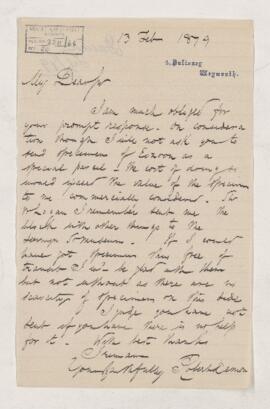 13 Feb 1879
Pulteney
Weymouth.
My Dear Sir
I am much obliged for
your prompt response. On considera
tion though I will not ask you to
send specimens of Eozoon as a
special parcel - the cost of doing so
would exceed the value of the specimen
to me commercially considered. Sir
W Logan I remember sent me the
block with other things to the
Jermyn St Museum. If I could
have got specimens thus free of
transit I sh'd be glad with them
but not without as there is no
scarcity of specimens on this side
I judge you have not
sent if you have there is no help
for it. With best thanks
I remain
Yours faithfully Robert Damon